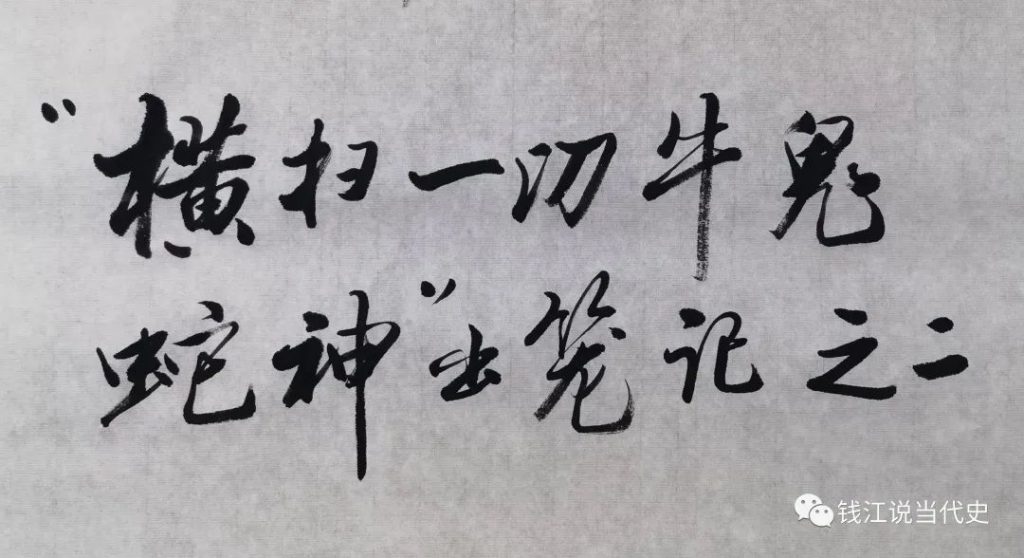 “横扫一切牛鬼
蛇神”出笼记之二
钱江说当代史